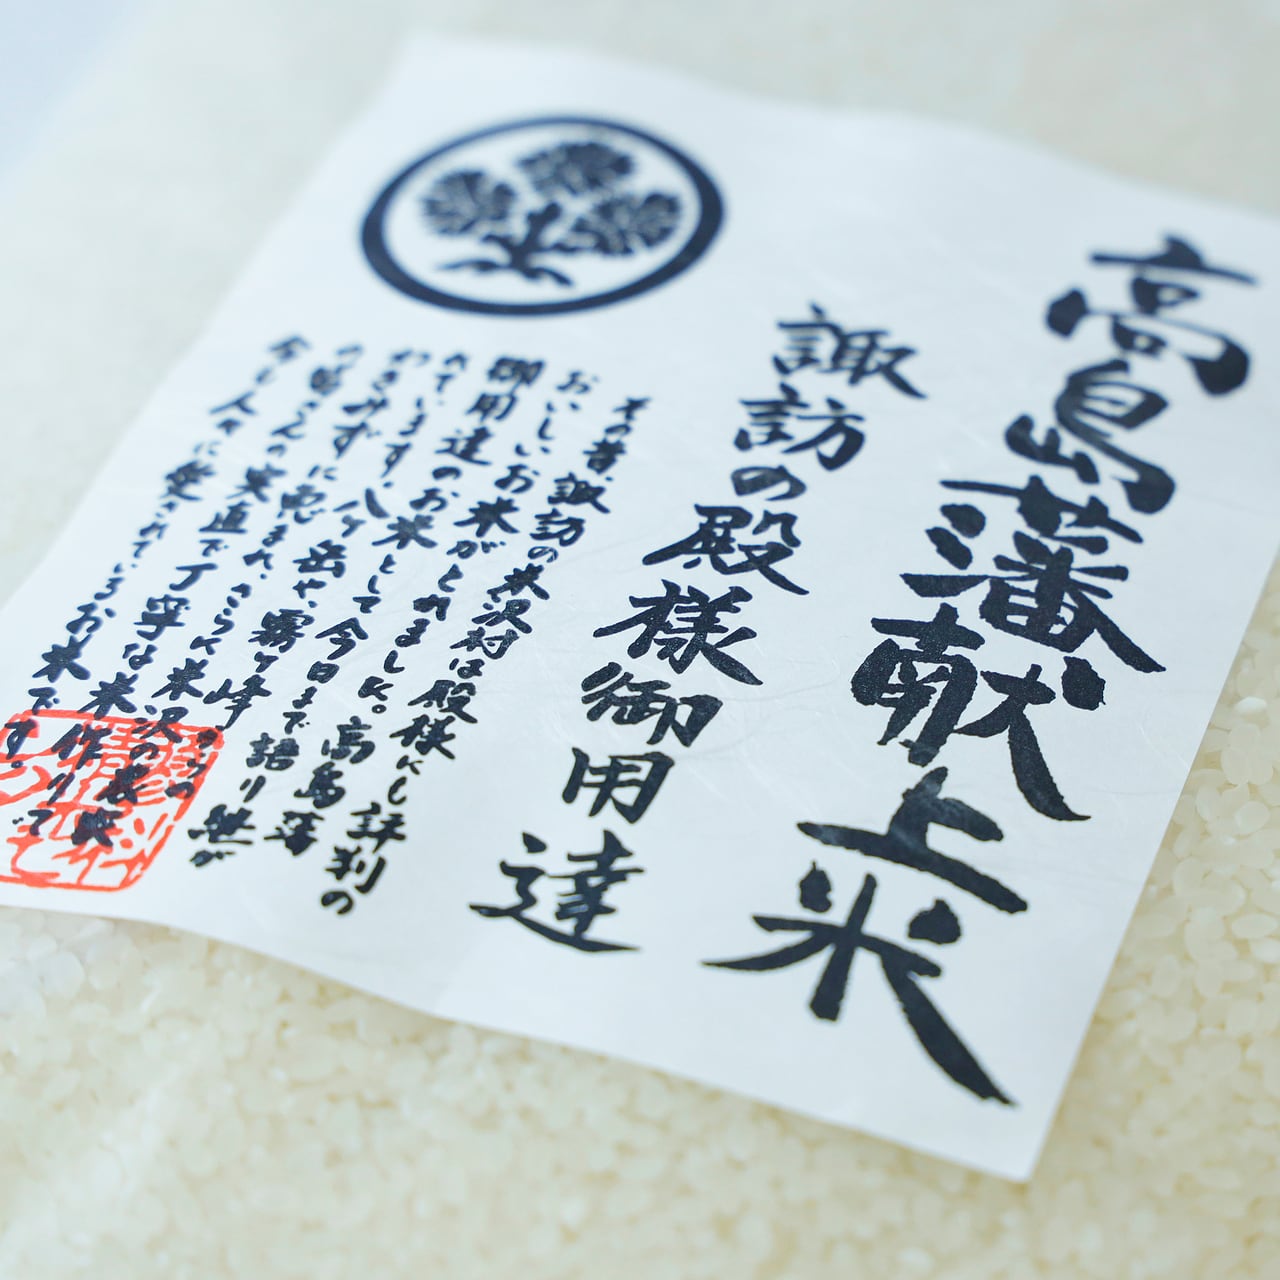 高島藩献上米
諏訪の殿様御用達
その昔、諏訪の米沢村は殿様にも評判の
おいしいお米がとれました。高島藩
御用達のお米として今日まで語り継が
れています。八ヶ岳や、霧ヶ峰からの
わきみずに恵まれ、さらに米沢の農家
の皆さんの実直で丁寧な米作りで
今も人々に愛されているお米です。